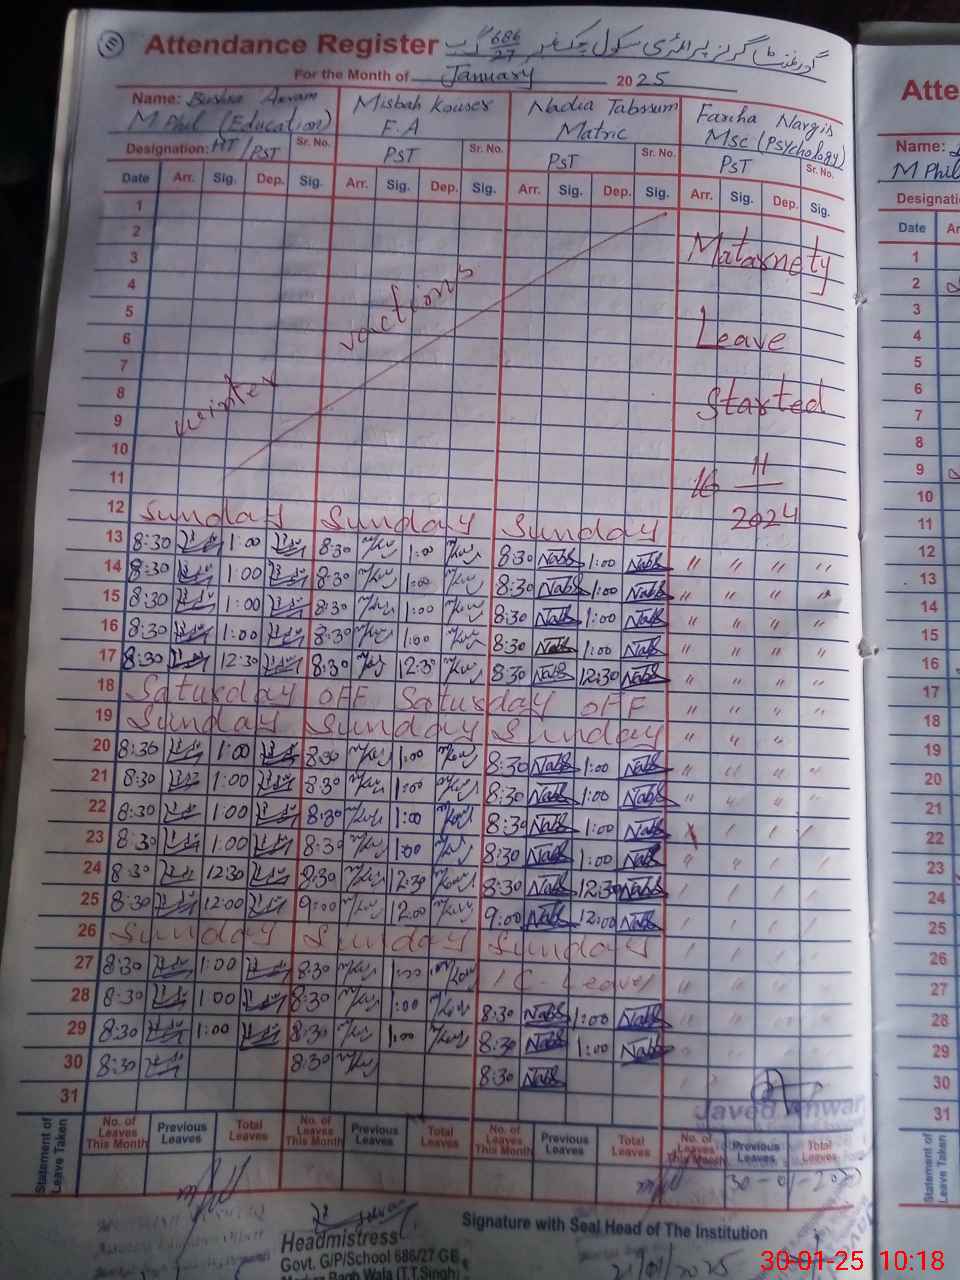 11 Attendance Register گورنمنٹ گرلز پرائمری سکول چک نمبر 686/27 گ ب
For the Month of January 2025
Name: Bushra Akram
M Phil (Education)
Designation: HT/PST Sr. No.
Misbah Kouser
F.A
PST Sr. No.
Nadia Tabssum
Matric
PST Sr. No.
Fariha Nargis
MSc (Psychology)
PST Sr. No.
Date Arr. Sig. Dep. Sig. Arr. Sig. Dep. Sig. Arr. Sig. Dep. Sig. Arr. Sig. Dep. Sig.
1
2
3
4
5
6
7
8
9
10
11
winter vactions
Matarnety
Leave
Started
16 11
2024
12 Sunday Sunday Sunday
13 8:30 1:00 8:30 1:00 8:30 Nabs 1:00 Nabs " " " "
14 8:30 1:00 8:30 1:00 8:30 Nabs 1:00 Nabs " " " "
15 8:30 1:00 8:30 1:00 8:30 Nabs 1:00 Nabs " " " "
16 8:30 1:00 8:30 1:00 8:30 Nabs 1:00 Nabs " " " "
17 8:30 12:30 8:30 12:30 8:30 Nabs 12:30 Nabs " " " "
18 Saturday OFF Saturday OFF " " " "
19 Sunday Sunday Sunday " " "
20 8:30 1:00 8:30 1:00 8:30 Nabs 1:00 Nabs " " " "
21 8:30 1:00 8:30 1:00 8:30 Nabs 1:00 Nabs " " " "
22 8:30 1:00 8:30 1:00 8:30 Nabs 1:00 Nabs
23 8:30 1:00 8:30 1:00 8:30 Nabs 1:00 Nabs
24 8:30 12:30 8:30 12:30 8:30 Nabs 12:30 Nabs
25 8:30 12:00 9:00 12:00 9:00 Nabs 12:00 Nabs
26 Sunday Sunday Sunday
27 8:30 1:00 8:30 1:00 1 C- Leave
28 8:30 1:00 8:30 1:00 8:30 Nabs 1:00 Nabs
29 8:30 1:00 8:30 1:00 8:30 Nabs 1:00 Nabs
30 8:30 8:30 8:30 Nabs
31
Javed Anwar
Statement of Leave Taken
No. of Leaves This Month Previous Leaves Total Leaves No. of Leaves This Month Previous Leaves Total Leaves No. of Leaves This Month Previous Leaves Total Leaves No. of Leaves This Month Previous Leaves Total Leaves
30-01-2025
Signature with Seal Head of The Institution
Headmistress
Govt. G/P/School 686/27 GB
21/01/2025
Atte
Name:
M Phil
Designati
Date Ar
1
2
3
4
5
6
7
8
9
10
11
12
13
14
15
16
17
18
19
20
21
22
23
24
25
26
27
28
29
30
31
Statement of Leave Taken
30-01-25 10:18